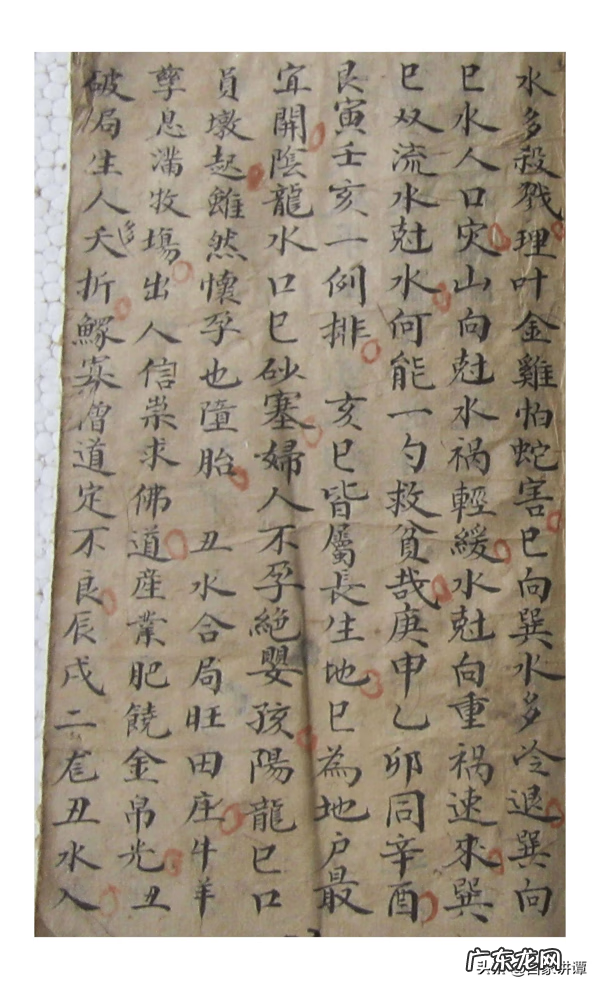 水多殺戮理叶金雞怕蛇害巳向巽水多冷退巽向
巳水人口灾山向尅水祸輕緩水尅向重祸速來巽
巳双流水尅水何能一勺救貧哉庚申乙卯同辛酉
艮寅壬亥一例排 亥巳皆屬長生地巳為地户最
宜開陰龍水口巳砂塞婦人不孕絶嬰孩陽龍巳口
員墩起雖然懷孕也墮胎 丑水合局旺田庄牛羊
孳息滿牧塲出人信崇求佛道産業肥饒金帛光丑
破局生人多夭折鰥寡僧道定不良辰戌二𡯁丑水入
广东龙网
头条 @百家讲谭